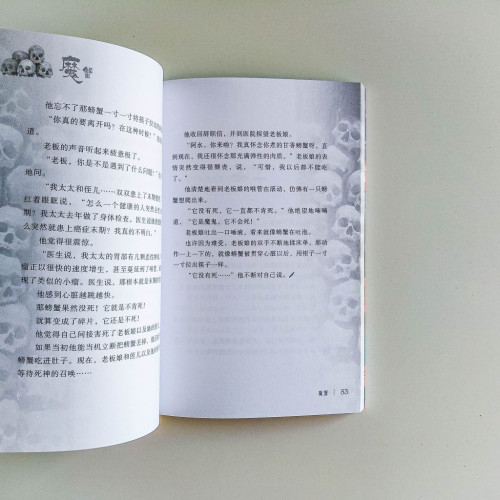 魔蟹
他忘不了那螃蟹一寸一寸将筷子
“你真的要离开吗？在这种时候？”
道。
老板的声音听起来疲惫极了。
“老板，你是不是遇到了什么问题？”
地问。
“我太太和侄儿……双双患上了末期
红着眼眶说，“怎么一个健康的人突然
期？我太太去年做了身体检查，医生说
么突然就患上癌症末期？我真的不明白。”
他觉得很震惊。
“医生说，我太太的胃部有几颗
瘤正以很快的速度增生，甚至蔓延到
了类似的小瘤。医生说，那根本就是末期
他感到心脏越跳越快。
那螃蟹果然没死！它就是不肯死！
就算变成了碎片，它还是不死！
他觉得自己间接害死了老板娘以及她的
如果当初他能当机立断把螃蟹丢掉，
螃蟹吃进肚子。现在，老板娘和侄儿以及
等待死神的召唤……
他收回辞职信，并到医院探望老板娘。
“阿水，你来啦？我真怀念你煮的甘香螃蟹呀。直
到现在，我还很怀念那充满弹性的肉质。”老板娘的表
情突然变得很颓丧，说，“可惜，我以后都不能吃
了。”
他清楚地看到老板娘的喉管在滚动，仿佛有一只螃
蟹想爬出来。
“它没有死，它一直都不肯死。”他绝望地喃喃
道，“它是魔鬼，它不会死！”
老板娘吐出一口唾液，看来就像螃蟹在吐泡。
也许因为难受，老板娘的双手不断地搓床单。那动
作一上一下的，就像螃蟹被贯穿心脏以后，用钳子一寸
一寸位出筷子一样。
“它没有死……”他不断对自己说。
魔蟹 | 53